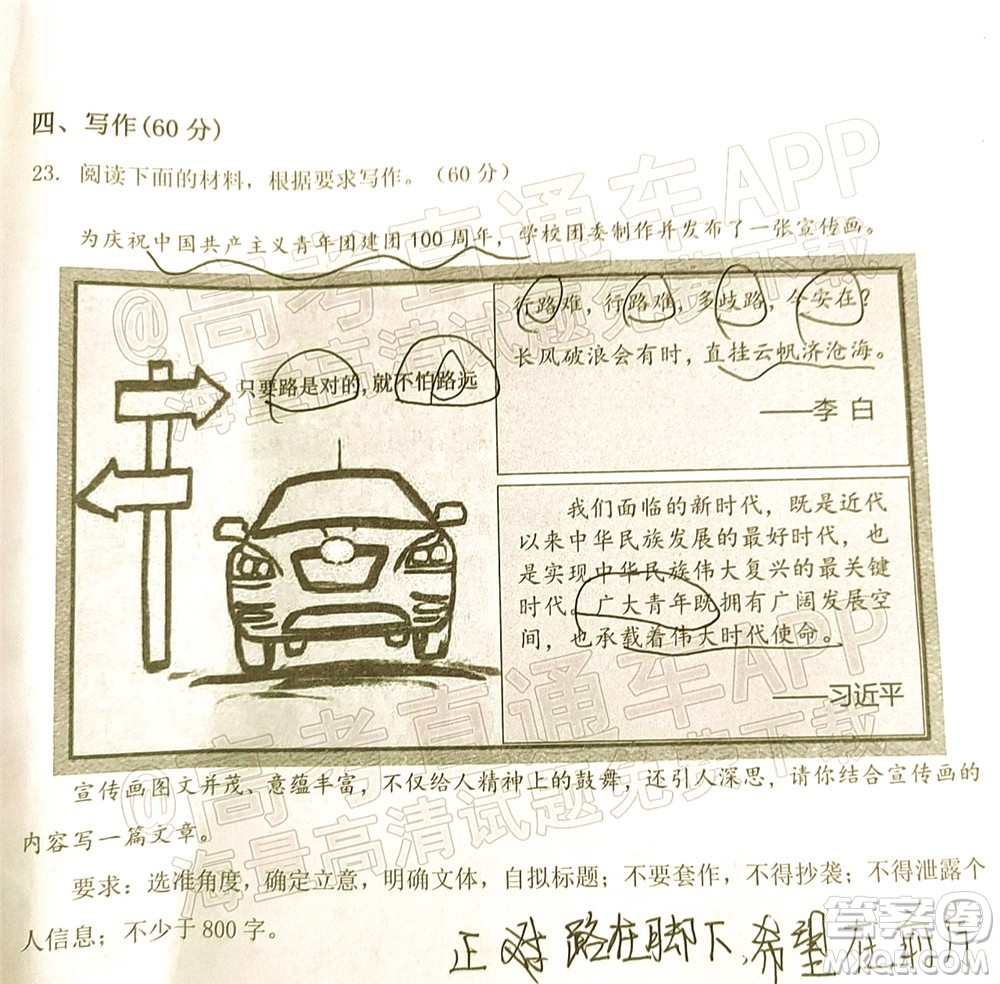 四、写作(60 分)
23. 阅读下面的材料，根据要求写作。（60 分）
为庆祝中国共产主义青年团建团 100 周年，学校团委制作并发布了一张宣传画。
只要路是对的，就不怕路远
行路难，行路难，多歧路，今安在？
长风破浪会有时，直挂云帆济沧海。
——李 白
我们面临的新时代，既是近代
以来中华民族发展的最好时代，也
是实现中华民族伟大复兴的最关键
时代。广大青年既拥有广阔发展空
间，也承载着伟大时代使命。
——习近平
宣传画图文并茂、意蕴丰富，不仅给人精神上的鼓舞，还引人深思，请你结合宣传画的
内容写一篇文章。
要求：选准角度，确定立意，明确文体，自拟标题；不要套作，不得抄袭；不得泄露个
人信息；不少于 800 字。
路在脚下，希望在前方
@高考直通车APP
海量高清试题免费下载
@高考直通车APP
海量高清试题免费下载